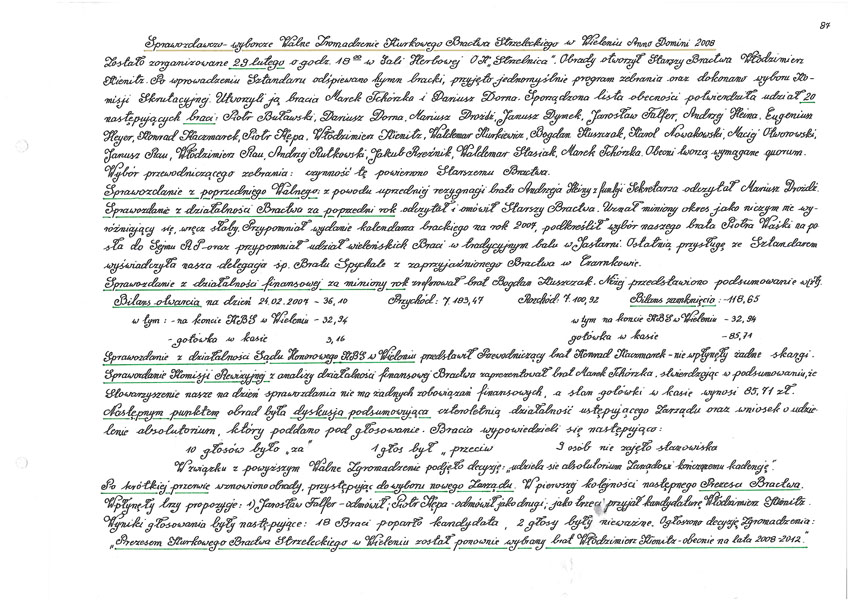 87
Sprawozdawczo-wyborcze Walne Zgromadzenie Kurkowego Bractwa Strzeleckiego w Wieleniu Anno Domini 2008
Zostało zorganizowane 29 lutego o godz. 18⁰⁰ w Sali Herbowej OH „Strzelnica”. Obrady otworzył Starszy Bractwa Włodzimierz
Kienitz. Po wprowadzeniu Sztandaru odśpiewano hymn bracki, przyjęto jednomyślnie program zebrania oraz dokonano wyboru Ko-
misji Skrutacyjnej. Utworzyli ją bracia Marek Tchórzka i Dariusz Dorna. Sporządzona lista obecności potwierdziła udział 20
następujących braci: Piotr Buławski, Dariusz Dorna, Mariusz Drożdż, Janusz Dynek, Jarosław Falfer, Andrzej Heina, Eugeniusz
Heyer, Konrad Kaczmarek, Piotr Kępa, Włodzimierz Kienitz, Waldemar Kurkiewicz, Bogdan Kuszczak, Karol Nowakowski, Maciej Otworowski,
Janusz Rau, Włodzimierz Rau, Andrzej Rutkowski, Jakub Rzeźnik, Waldemar Stasiak, Marek Tchórzka. Obecni tworzą wymagane quorum.
Wybór przewodniczącego zebrania: czynność tę powierzono Starszemu Bractwa.
Sprawozdanie z poprzedniego Walnego: z powodu uprzedniej rezygnacji brata Andrzeja Heiny z funkcji Sekretarza odczytał Mariusz Drożdż.
Sprawozdanie z działalności Bractwa za poprzedni rok odczytał i omówił Starszy Bractwa. Uznał miniony okres jako niczym nie wy-
różniający się, wręcz słaby. Przypomniał wydanie kalendarza brackiego na rok 2007, podkreślił wybór naszego brata Piotra Waśki na po-
sła do Sejmu RP oraz przypomniał udział wieleńskich Braci w tradycyjnym balu w Jastarni. Ostatnią przysługę ze Sztandarem
wyświadczyła nasza delegacja śp. Bratu Spychale z zaprzyjaźnionego Bractwa w Czarnkowie.
Sprawozdanie z działalności finansowej za miniony rok zreferował brat Bogdan Kuszczak. Niżej przedstawiono podsumowanie w/tj.
Bilans otwarcia na dzień 21.02.2007 - 36,10 Przychód: 7.183,47 Rozchód: 7.100,92 Bilans zamknięcia: - 118,65
w tym: - na koncie KBS w Wieleniu - 32,94 w tym na koncie KBS w Wieleniu - 32,94
- gotówka w kasie 3,16 gotówka w kasie - 85,71
Sprawozdanie z działalności Sądu Honorowego KBS w Wieleniu przedstawił Przewodniczący brat Konrad Kaczmarek - nie wpłynęły żadne skargi.
Sprawozdanie Komisji Rewizyjnej z analizy działalności finansowej Bractwa zaprezentował brat Marek Tchórzka, stwierdzając w podsumowaniu, że
Stowarzyszenie nasze na dzień sprawozdania nie ma żadnych zobowiązań finansowych, a stan gotówki w kasie wynosi 85,71 zł.
Następnym punktem obrad była dyskusja podsumowująca czteroletnią działalność ustępującego Zarządu oraz wniosek o udzie-
lenie absolutorium, który poddano pod głosowanie. Bracia wypowiedzieli się następująco:
10 głosów było „za” 1 głos był „przeciw 9 osób nie zajęło stanowiska
W związku z powyższym Walne Zgromadzenie podjęło decyzję: „udziela się absolutorium Zarządowi kończącemu kadencję”.
Po krótkiej przerwie wznowiono obrady, przystępując do wyboru nowego Zarządu. W pierwszej kolejności następnego Prezesa Bractwa.
Wpłynęły trzy propozycje: 1) Jarosław Falfer - odmówił; Piotr Kępa - odmówił jako drugi; jako trzeci przyjął kandydaturę Włodzimierz Kienitz.
Wyniki głosowania były następujące: 18 Braci poparło kandydata, 2 głosy były nieważne. Ogłoszono decyzję Zgromadzenia:
„Prezesem Kurkowego Bractwa Strzeleckiego w Wieleniu został ponownie wybrany brat Włodzimierz Kienitz - obecnie na lata 2008-2012.”